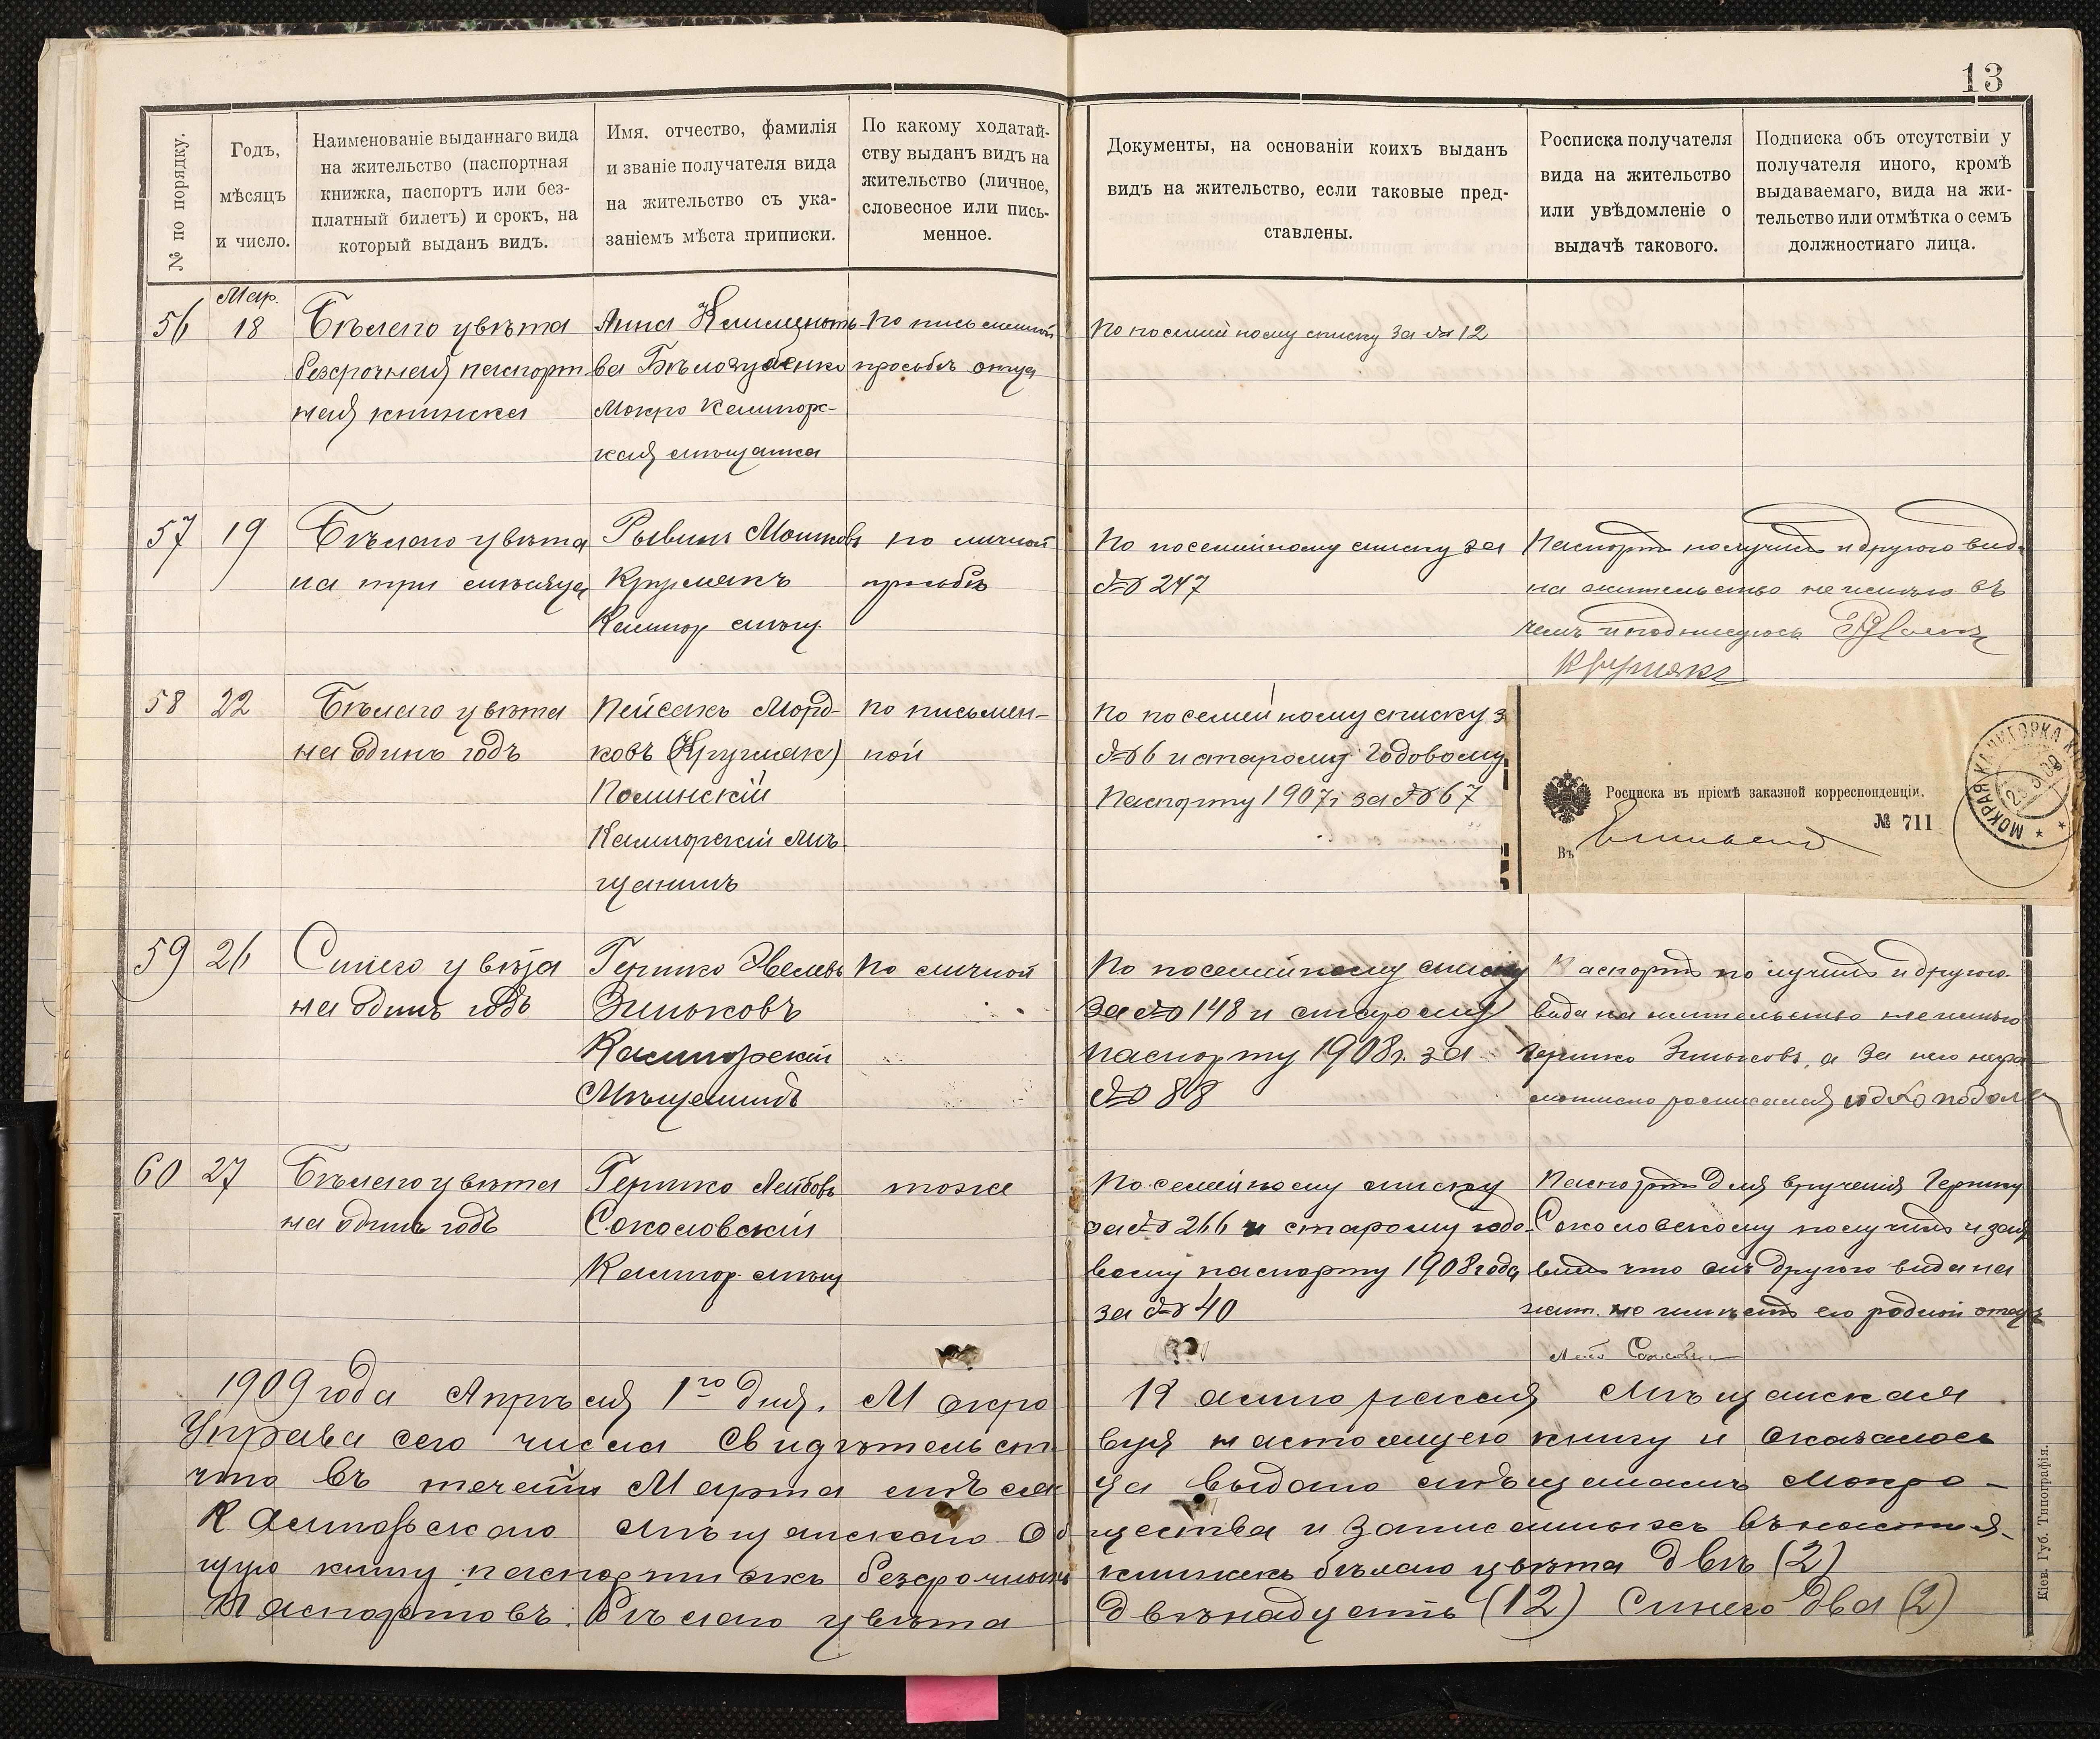 13
№ по порядку.
Годъ,
мѣсяцъ
и число.
Наименованіе выданнаго вида
на жительство (паспортная
книжка, паспортъ или без-
платный билетъ) и срокъ, на
который выданъ видъ.
Имя, отчество, фамилія
и званіе получателя вида
на жительство съ ука-
заніемъ мѣста приписки.
По какому ходатай-
ству выданъ видъ на
жительство (личное,
словесное или пись-
менное.
Документы, на основаніи коихъ выданъ
видъ на жительство, если таковые пред-
ставлены.
Росписка получателя
вида на жительство
или увѣдомленіе о
выдачѣ такового.
Подписка объ отсутствіи у
получателя иного, кромѣ
выдаваемаго, вида на жи-
тельство или отмѣтка о семъ
должностнаго лица.
56
Мар.
18
Бѣлаго цвѣта
безсрочная паспорт
ная книжка
Анна
ва Бѣлозубенко
Мокро Калигор-
кая мѣщанка
По письменной
просьбѣ отца
По посемейному списку за № 12
57
19
Бѣлаго цвѣта
на три мѣсяца
Рывинъ Мошковъ
Кругляк
Калигор мѣщ.
по личной
просьбѣ
По посемейному списку за
№ 247
Паспортъ получилъ и другого вида
на жительство не имѣю въ
чемъ и подписуюсь
58
22
Бѣлаго цвѣта
на одинъ годъ
Пейсахъ Морд-
ковъ (Кругляк)
Полинскій
Калигорскій Мѣ-
щанинъ
по письмен-
ной
По посемейному списку з
№ 66 и старому годовому
Паспорту 1907 г за № 67
Росписка въ пріемѣ заказной корреспонденціи.
№ 711
Въ
МОКРАЯ КАЛИГОРКА
59
26
Синего цвѣта
на одинъ годъ
Гершко Хвелевъ
Зиньковъ
Калигорскій
Мѣщанинъ
По личной
По посемейному списку
за № 148 и старому
паспорту 1908 г. за
№ 88
Паспортъ получилъ и другого
вида на жительство не имѣю
Гершко Зиньковъ, а за него негра
мотнаго росписался
60
27
Бѣлаго цвѣта
на одинъ годъ
Гершко Лейбовъ
Соколовскій
Калигор. мѣщ
тоже
По семейному списку
за № 266 и старому годо-
вому паспорту 1908 года
за № 40
Паспортъ для врученія Гершку
Соколовскому получилъ и зая
вилъ что онъ другого вида на
жит. не имѣетъ его родной отецъ
1909 года Апрѣля 1го дня. Мокро Калигорская Мѣщанская
Управа сего числа свидѣтельствуя настоящею книгу и оказалось
что въ теченіи Марта мѣсяца выдано мѣщанамъ Мокро-
Калигорскаго мѣщанскаго Общества и записанныхъ въ настоя-
щую книгу паспортныхъ безсрочныхъ книжекъ бѣлаго цвѣта двѣ (2)
Паспортовъ: бѣлаго цвѣта двѣнадцать (12) Синего два (2)
Кіев. Губ. Типографія.